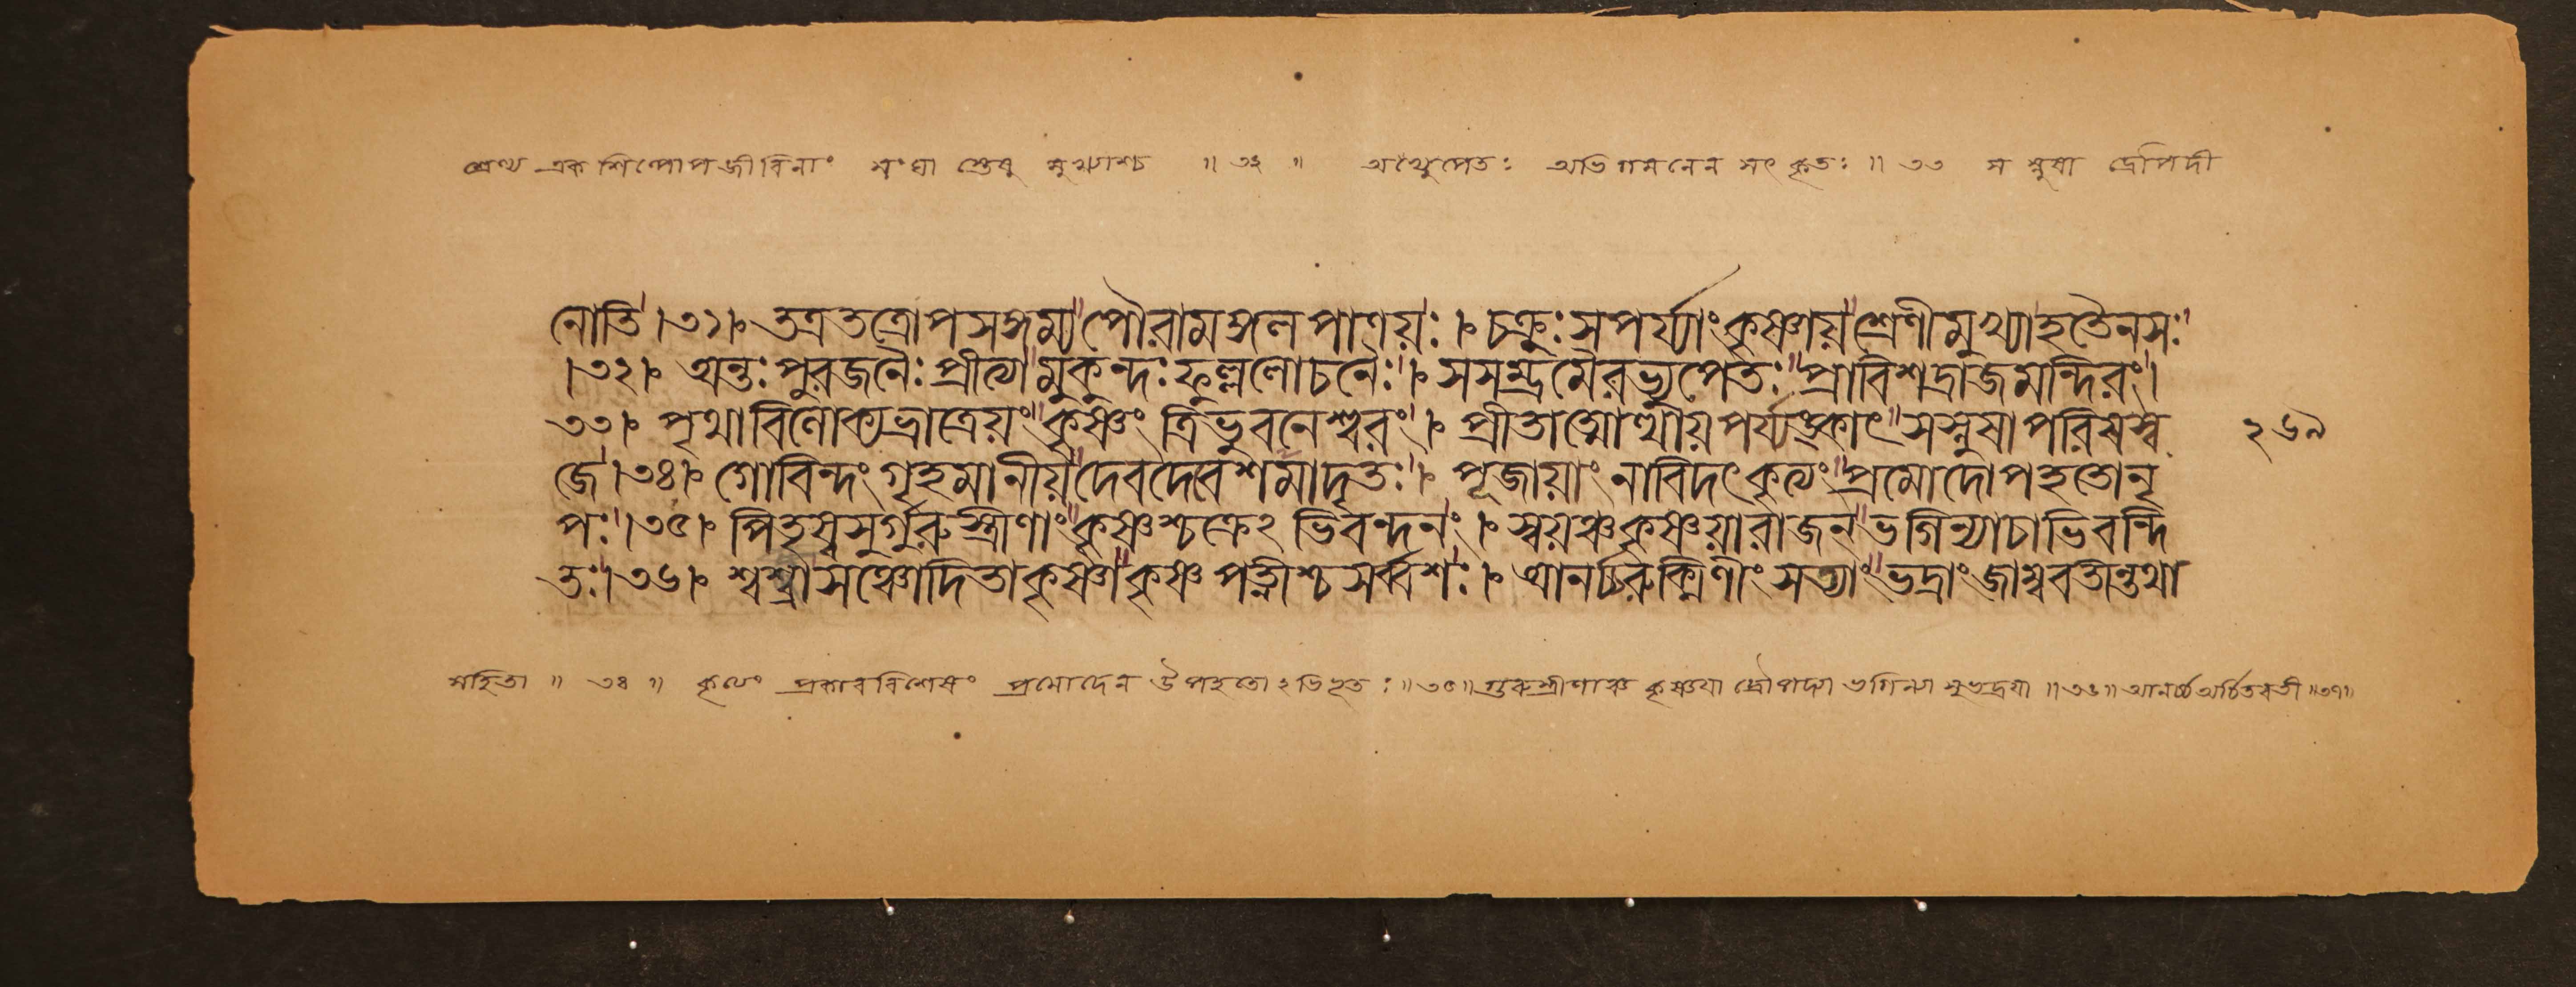 শ্রেণ্য এক শিল্পোপজীবিনাং সংঘা স্তেষু মুখ্যাশ্চ ॥ ৩২ ॥ অভ্যুপেতঃ অভিগমনেন সৎকৃতঃ ॥ ৩৩ সস্নুষা দ্রৌপদী
নোতি ।৩১। তত্রতত্রোপসঙ্গম্য পৌরামঙ্গলপাণয়ঃ । চক্রুঃসপর্য্যাংকৃষ্ণায় শ্রেণীমুখ্যাহতৈনসঃ
।৩২। অন্তঃপুরজনৈঃপ্রীত্যা মুকুন্দঃফুল্ললোচনৈঃ । সসম্ভ্রমৈরভ্যুপেতঃ প্রাবিশদ্রাজমন্দিরং ।
৩৩। পৃথাবিলোক্যভ্রাত্রেয়ং কৃষ্ণং ত্রিভুবনেশ্বরং । প্রীতাত্মোত্থায়পর্য্যঙ্কাৎ সস্নুষাপরিষস্ব
২৬৯
জে ।৩৪। গোবিন্দংগৃহমানীয় দেবদেবেশমাদৃতঃ । পূজায়াংনাবিদৎকৃত্যং প্রমোদোপহতোনৃ
পঃ ।৩৫। পিতৃস্বসুর্গুরুস্ত্রীণাং কৃষ্ণশ্চক্রেঽভিবন্দনং । স্বয়ঞ্চকৃষ্ণয়ারাজন্ ভগিন্যাচাভিবন্দি
তঃ ।৩৬। শ্বশ্ৰ্বাসঞ্চোদিতাকৃষ্ণা কৃষ্ণপত্নীশ্চসর্ব্বশঃ । আনর্চ্চরুক্মিণীংসত্যাং ভদ্রাংজাম্ববতীন্তথা
সহিতা ॥ ৩৪ ॥ কৃত্যং প্রকারবিশেষং প্রমোদেন উপহতোঽভিভূতঃ ॥৩৫॥ গুরুস্ত্রীণাঞ্চ কৃষ্ণয়া দ্রৌপদ্যা ভগিন্যা সুভদ্রয়া ॥৩৬॥ আনর্চ্চ অর্চিতবতী ॥৩৭॥